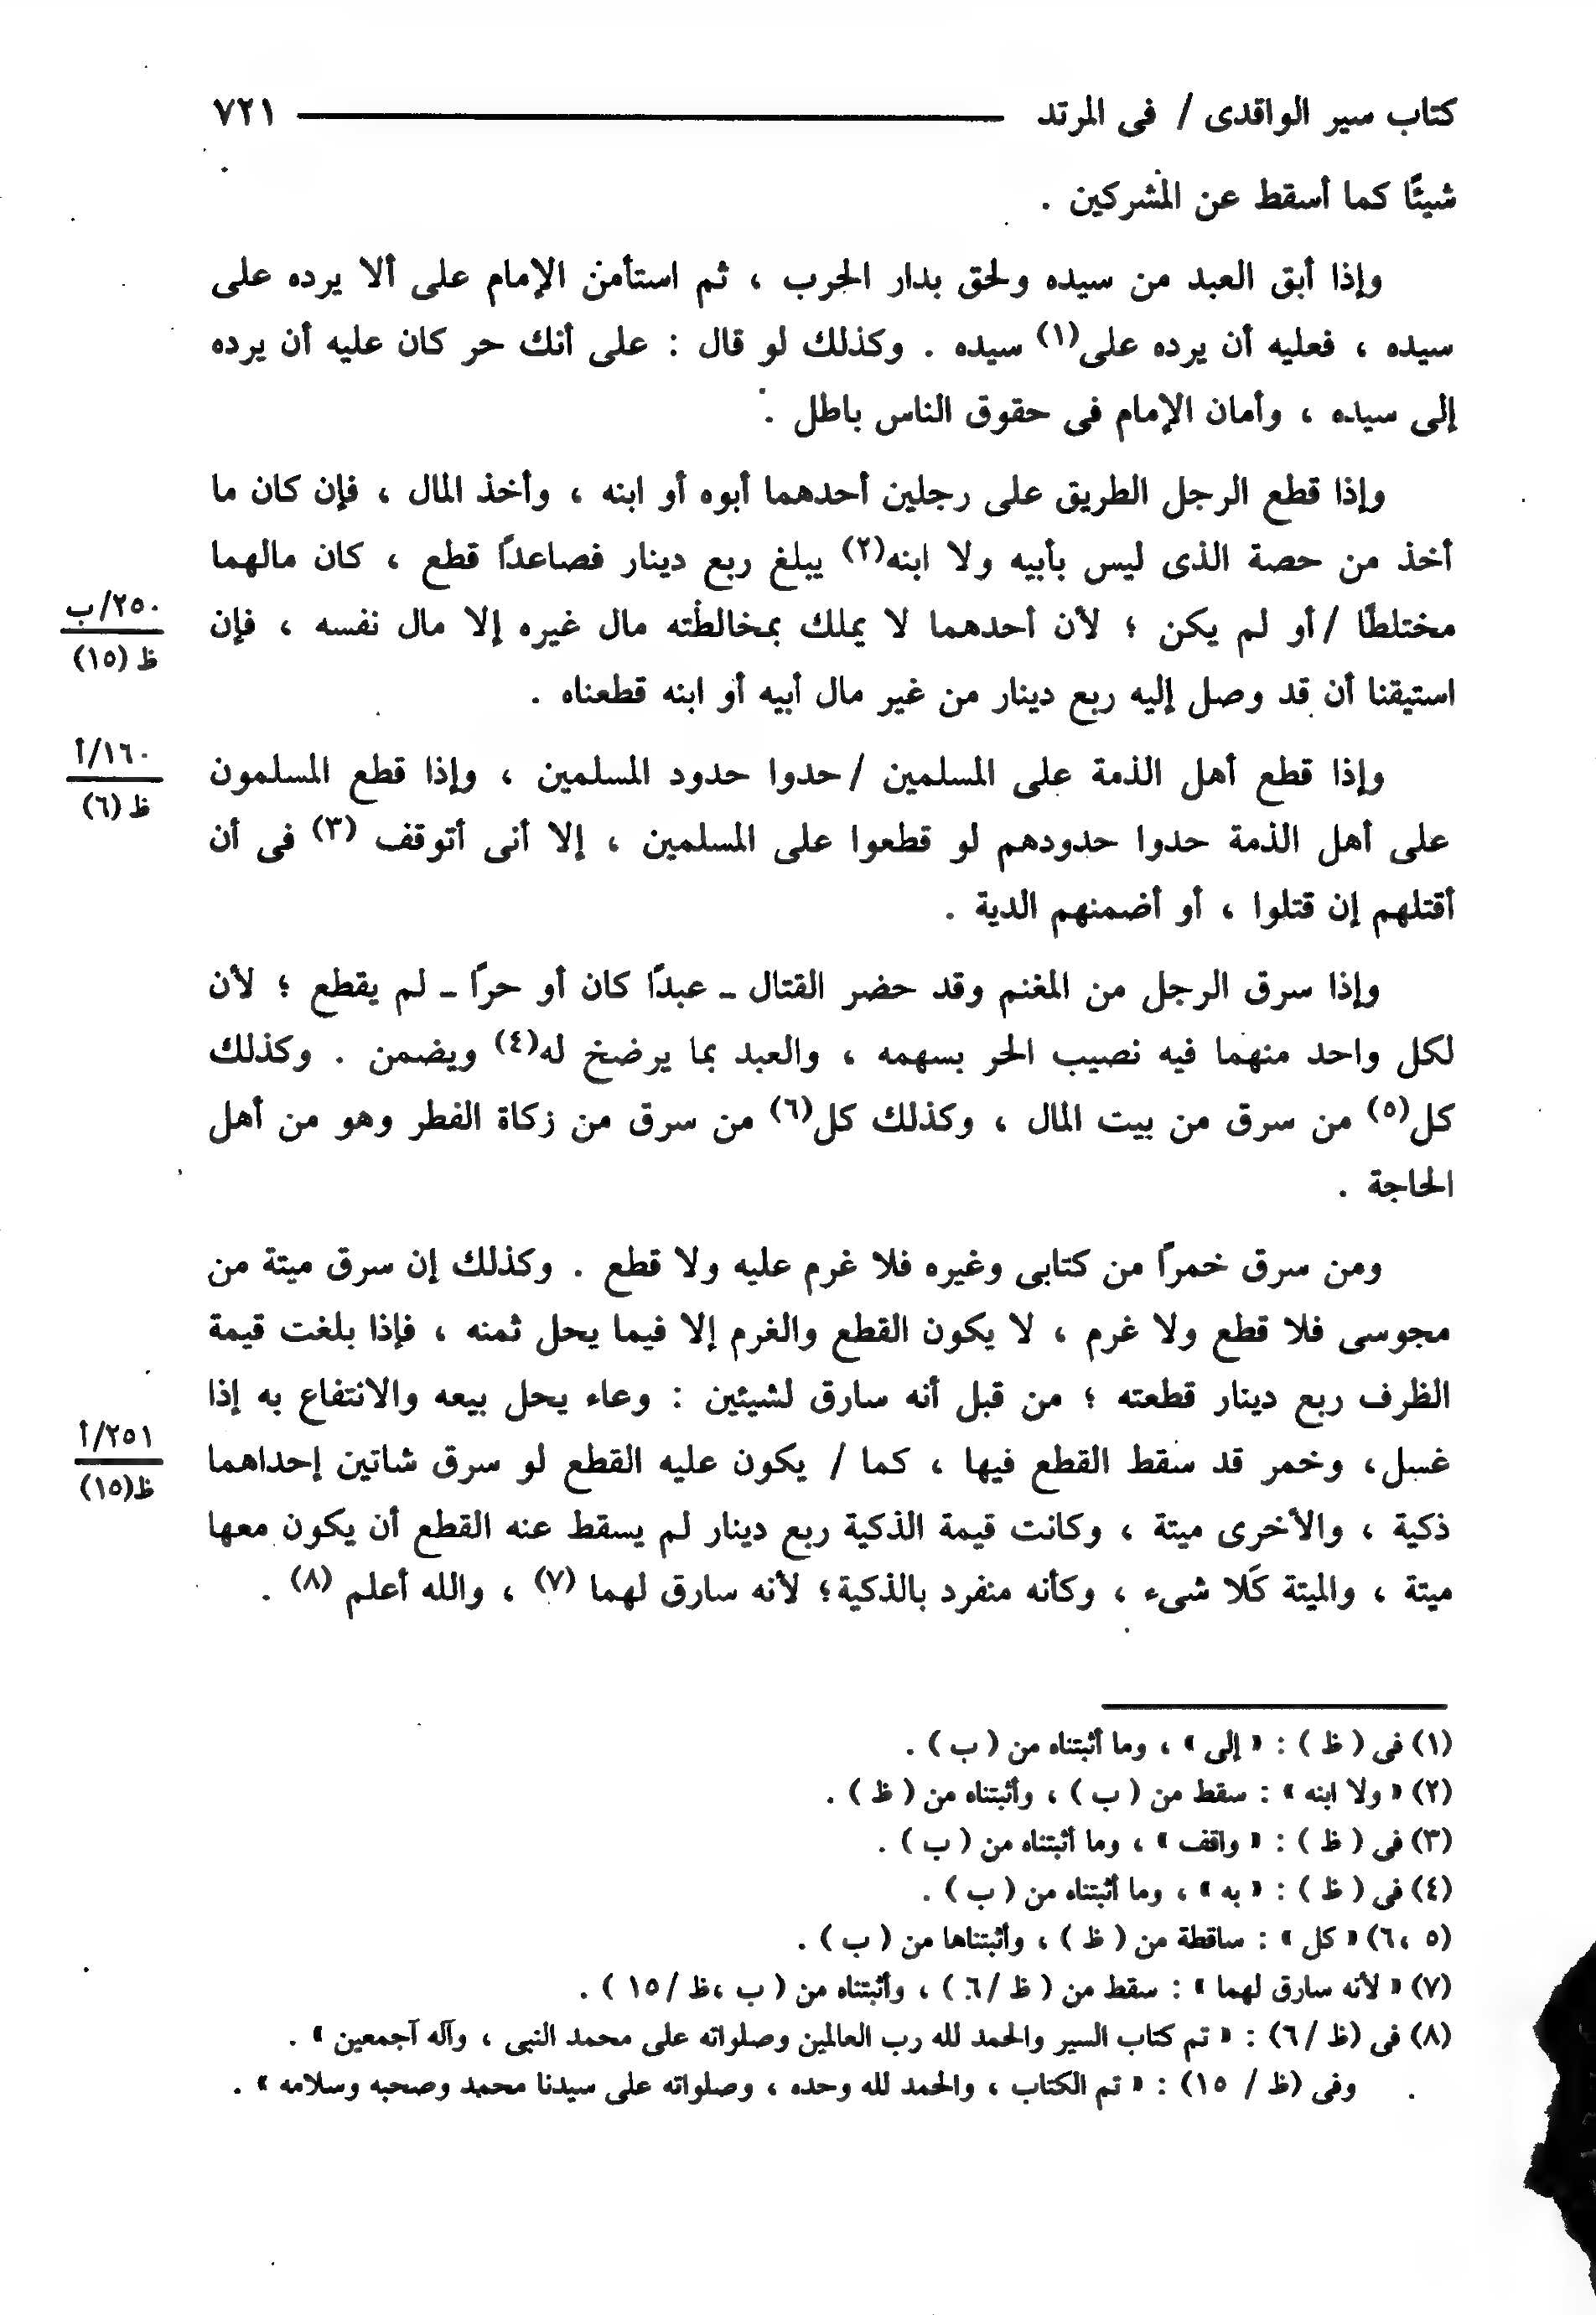 كتاب سير الواقدى / فى المرتد ٧٢١
شيئًا كما أسقط عن المشركين .
وإذا أبق العبد من سيده ولحق بدار الحرب ، ثم استأمن الإمام على ألا يرده على
سيده ، فعليه أن يرده على(١) سيده . وكذلك لو قال : على أنك حر كان عليه أن يرده
إلى سيده ، وأمان الإمام فى حقوق الناس باطل .
وإذا قطع الرجل الطريق على رجلين أحدهما أبوه أو ابنه ، وأخذ المال ، فإن كان ما
أخذ من حصة الذى ليس بأبيه ولا ابنه(٢) يبلغ ربع دينار فصاعدًا قطع ، كان مالهما
مختلطًا /أو لم يكن ؛ لأن أحدهما لا يملك بمخالطته مال غيره إلا مال نفسه ، فإن
٢٥٠/ب
ظ (١٥)
استيقنا أن قد وصل إليه ربع دينار من غير مال أبيه أو ابنه قطعناه .
وإذا قطع أهل الذمة على المسلمين /حدوا حدود المسلمين ، وإذا قطع المسلمون
١٦٠/أ
ظ (٦)
على أهل الذمة حدوا حدودهم لو قطعوا على المسلمين ، إلا أنى أتوقف (٣) فى أن
أقتلهم إن قتلوا ، أو أضمنهم الدية .
وإذا سرق الرجل من المغنم وقد حضر القتال ـ عبدًا كان أو حرًا ـ لم يقطع ؛ لأن
لكل واحد منهما فيه نصيب الحر بسهمه ، والعبد بما يرضخ له(٤) ويضمن . وكذلك
كل(٥) من سرق من بيت المال ، وكذلك كل(٦) من سرق من زكاة الفطر وهو من أهل
الحاجة .
ومن سرق خمرًا من كتابى وغيره فلا غرم عليه ولا قطع . وكذلك إن سرق ميتة من
مجوسى فلا قطع ولا غرم ، لا يكون القطع والغرم إلا فيما يحل ثمنه ، فإذا بلغت قيمة
الظرف ربع دينار قطعته ؛ من قبل أنه سارق لشيئين : وعاء يحل بيعه والانتفاع به إذا
غسل، وخمر قد سقط القطع فيها ، كما / يكون عليه القطع لو سرق شاتين إحداهما
٢٥١/أ
ظ(١٥)
ذكية ، والأخرى ميتة ، وكانت قيمة الذكية ربع دينار لم يسقط عنه القطع أن يكون معها
ميتة ، والميتة كَلا شىء ، وكأنه منفرد بالذكية؛ لأنه سارق لهما (٧) ، والله أعلم (٨) .
(١) فى ( ظ ) : « إلى » ، وما أثبتناه من ( ب ) .
(٢) « ولا ابنه » : سقط من ( ب ) ، وأثبتناه من ( ظ ) .
(٣) فى ( ظ ) : « واقف » ، وما أثبتناه من ( ب ) .
(٤) فى ( ظ ) : « به » ، وما أثبتناه من ( ب ) .
(٥ ،٦) « كل » : ساقطة من ( ظ ) ، وأثبتناها من ( ب ) .
(٧) « لأنه سارق لهما » : سقط من ( ظ /٦ ) ، وأثبتناه من ( ب ،ظ /١٥ ) .
(٨) فى (ظ /٦) : « تم كتاب السير والحمد لله رب العالمين وصلواته على محمد النبى ، وآله آجمعين » .
وفى (ظ / ١٥) : « تم الكتاب ، والحمد لله وحده ، وصلواته على سيدنا محمد وصحبه وسلامه » .